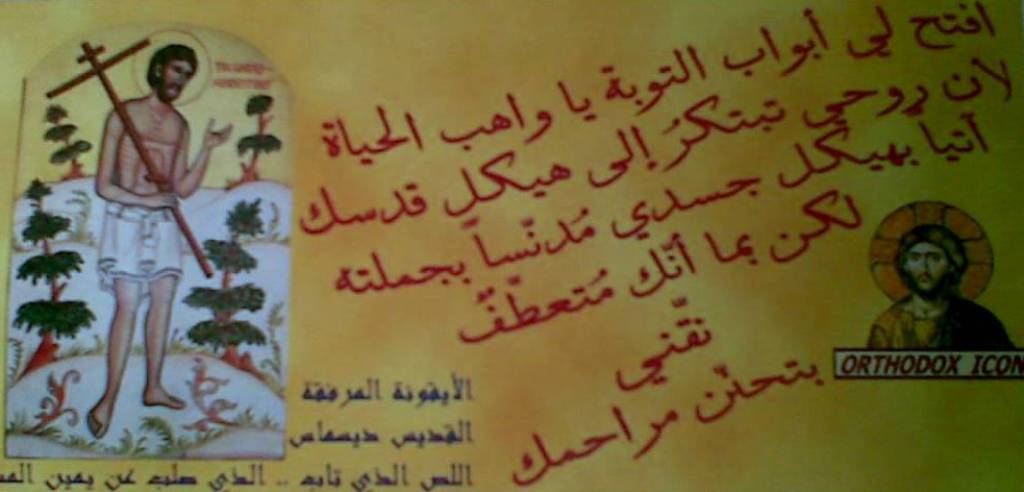 افتح لي أبواب التوبة يا واهب الحياة
لان روحي تبتكرُ إلى هيكل قدسك
آتياً بهيكل جسدي مُدنّساً بجملته
لكن بما أنّك مُتعطّفٌ
نقّني
بتحنّن مراحمك
ORTHODOX ICON
الأيقونة المرفقة
القديس ديسماس
اللص الذي تاب .. الذي صلب عن يمين